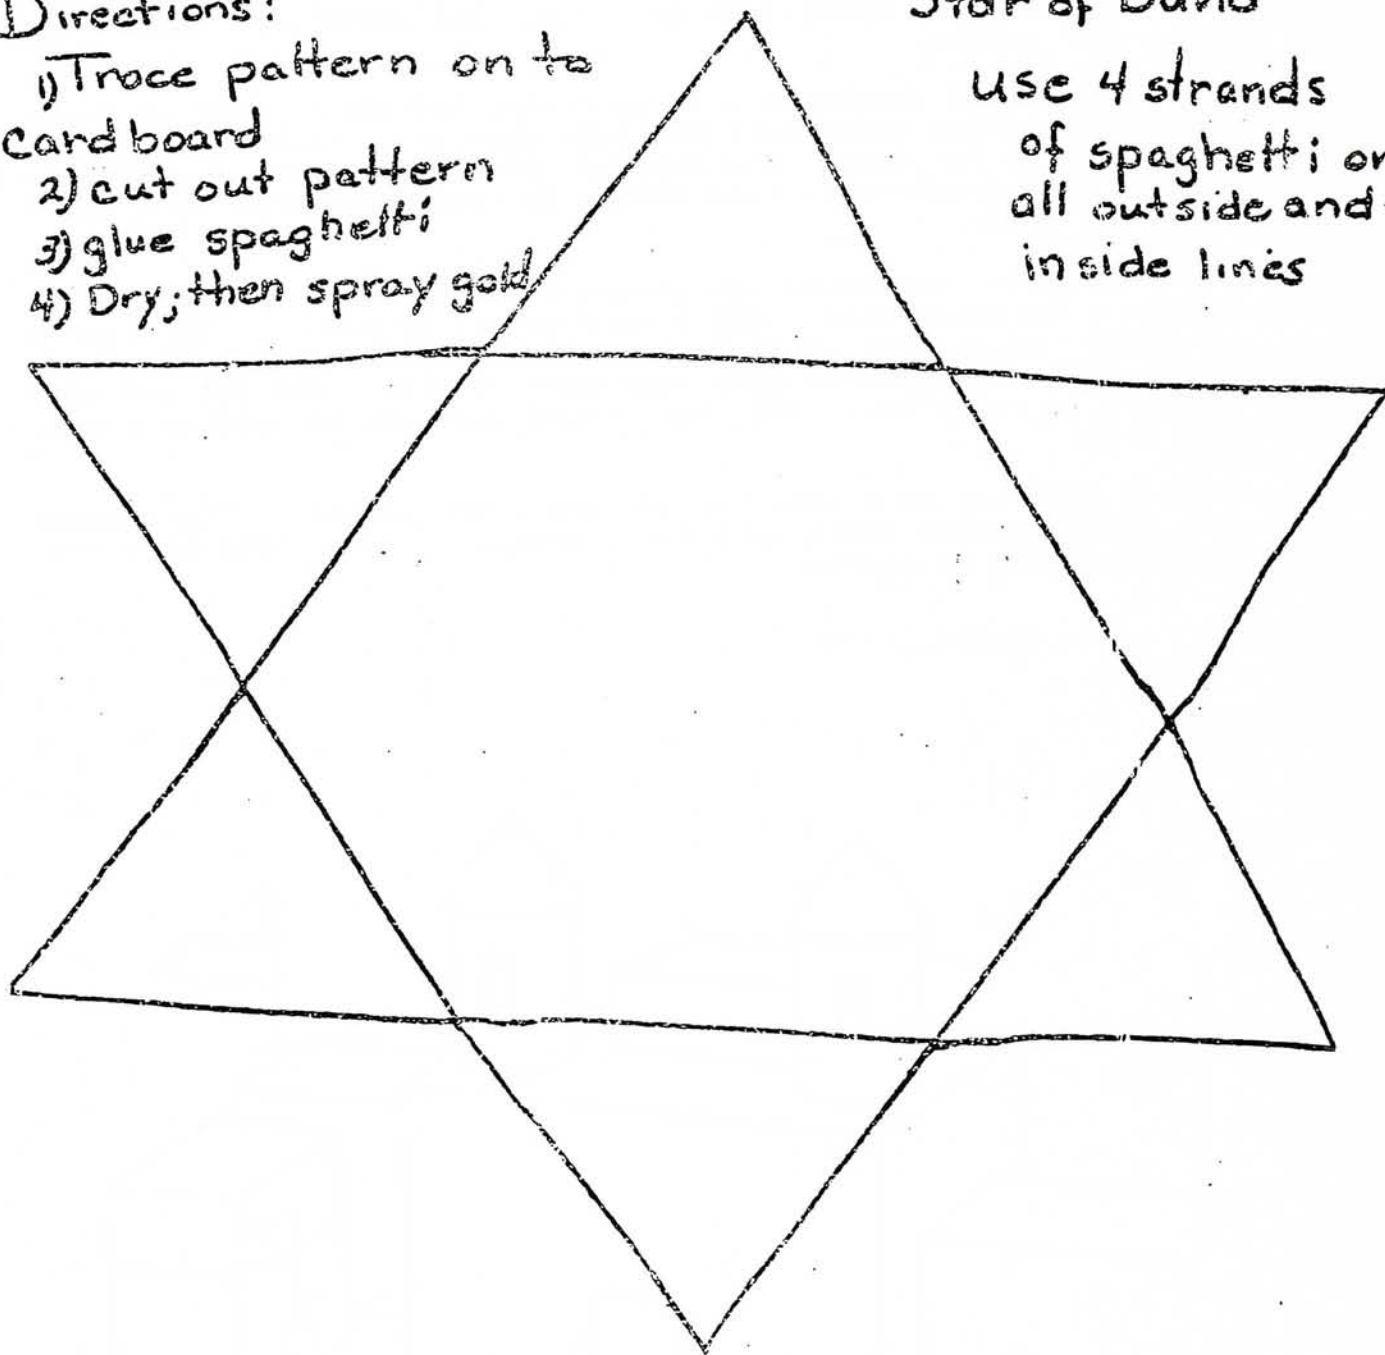 Directions:
1) Trace pattern on to
Cardboard
2) cut out pattern
3) glue spaghetti
4) Dry; then spray gold
Star of David
use 4 strands
of spaghetti on
all outside and
inside lines